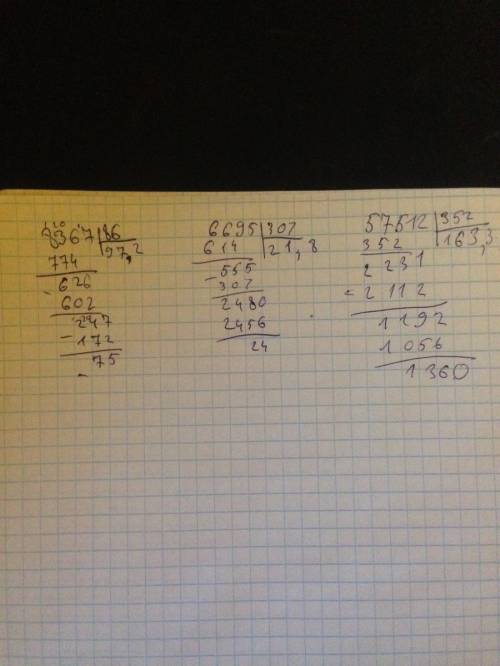 8367 | 86
97,2
774
626
602
247
- 172
75
6695 | 307
614 | 21,8
- 555
307
2480
2456
24
57512 | 352
352 | 163,3
2231
- 2112
1192
1056
1360